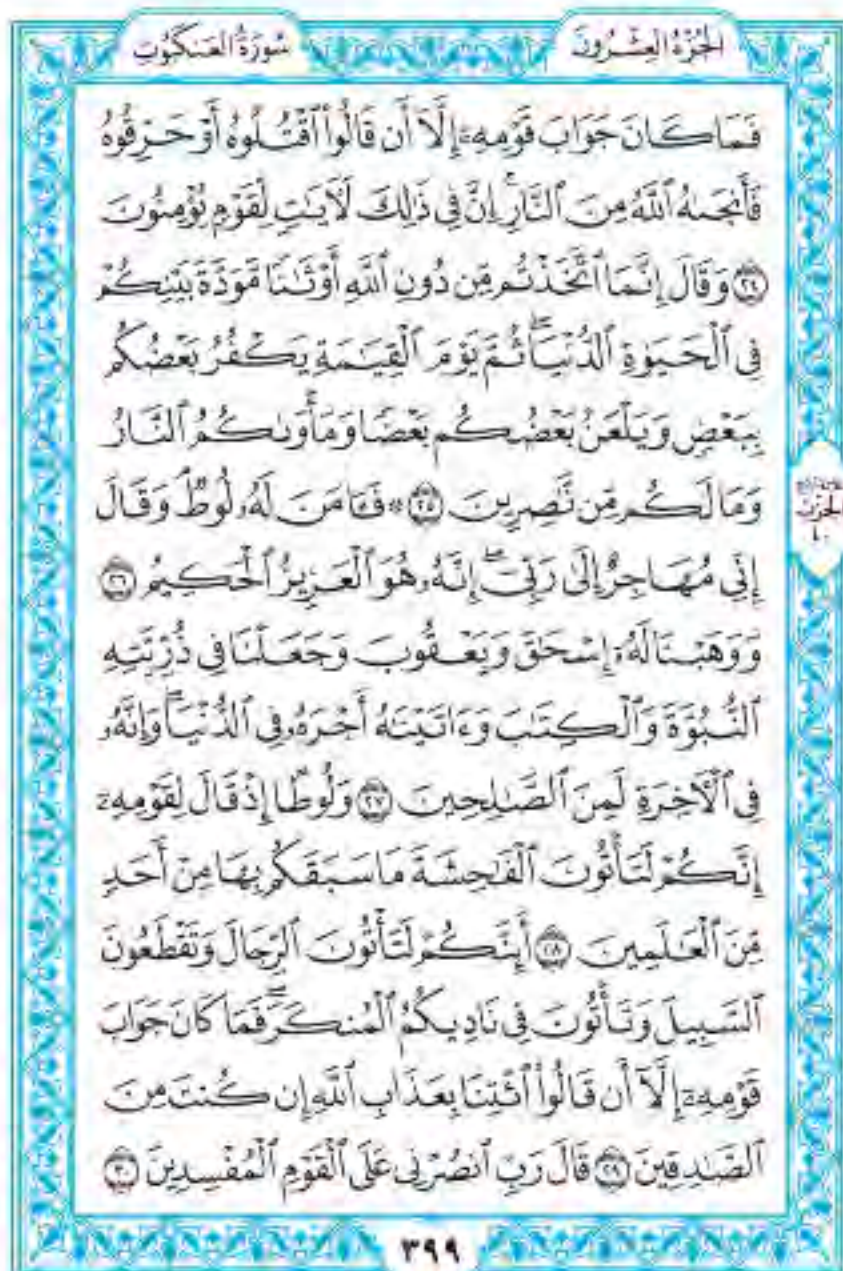 الجُزْءُ العِشْرُونَ
سُورَةُ العَنكَبُوتِ
فَمَا كَانَ جَوَابَ قَوْمِهِۦٓ إِلَّآ أَن قَالُوا۟ ٱقْتُلُوهُ أَوْ حَرِّقُوهُ
فَأَنجَىٰهُ ٱللَّهُ مِنَ ٱلنَّارِ ۚ إِنَّ فِى ذَٰلِكَ لَـَٔايَـٰتٍ لِّقَوْمٍ يُؤْمِنُونَ
﴿٢٤﴾ وَقَالَ إِنَّمَا ٱتَّخَذْتُم مِّن دُونِ ٱللَّهِ أَوْثَـٰنًا مَّوَدَّةَ بَيْنِكُمْ
فِى ٱلْحَيَوٰةِ ٱلدُّنْيَا ۖ ثُمَّ يَوْمَ ٱلْقِيَـٰمَةِ يَكْفُرُ بَعْضُكُم
بِبَعْضٍ وَيَلْعَنُ بَعْضُكُم بَعْضًا وَمَأْوَىٰكُمُ ٱلنَّارُ
وَمَا لَكُم مِّن نَّـٰصِرِينَ ﴿٢٥﴾ ۞ فَـَٔامَنَ لَهُۥ لُوطٌ ۘ وَقَالَ
إِنِّى مُهَاجِرٌ إِلَىٰ رَبِّىٓ ۖ إِنَّهُۥ هُوَ ٱلْعَزِيزُ ٱلْحَكِيمُ ﴿٢٦﴾
وَوَهَبْنَا لَهُۥٓ إِسْحَـٰقَ وَيَعْقُوبَ وَجَعَلْنَا فِى ذُرِّيَّتِهِ
ٱلنُّبُوَّةَ وَٱلْكِتَـٰبَ وَءَاتَيْنَـٰهُ أَجْرَهُۥ فِى ٱلدُّنْيَا ۖ وَإِنَّهُۥ
فِى ٱلْـَٔاخِرَةِ لَمِنَ ٱلصَّـٰلِحِينَ ﴿٢٧﴾ وَلُوطًا إِذْ قَالَ لِقَوْمِهِۦٓ
إِنَّكُمْ لَتَأْتُونَ ٱلْفَـٰحِشَةَ مَا سَبَقَكُم بِهَا مِنْ أَحَدٍ
مِّنَ ٱلْعَـٰلَمِينَ ﴿٢٨﴾ أَئِنَّكُمْ لَتَأْتُونَ ٱلرِّجَالَ وَتَقْطَعُونَ
ٱلسَّبِيلَ وَتَأْتُونَ فِى نَادِيكُمُ ٱلْمُنكَرَ ۖ فَمَا كَانَ جَوَابَ
قَوْمِهِۦٓ إِلَّآ أَن قَالُوا۟ ٱئْتِنَا بِعَذَابِ ٱللَّهِ إِن كُنتَ مِنَ
ٱلصَّـٰدِقِينَ ﴿٢٩﴾ قَالَ رَبِّ ٱنصُرْنِى عَلَى ٱلْقَوْمِ ٱلْمُفْسِدِينَ ﴿٣٠﴾
الحِزْبُ
٤٠
٣٩٩